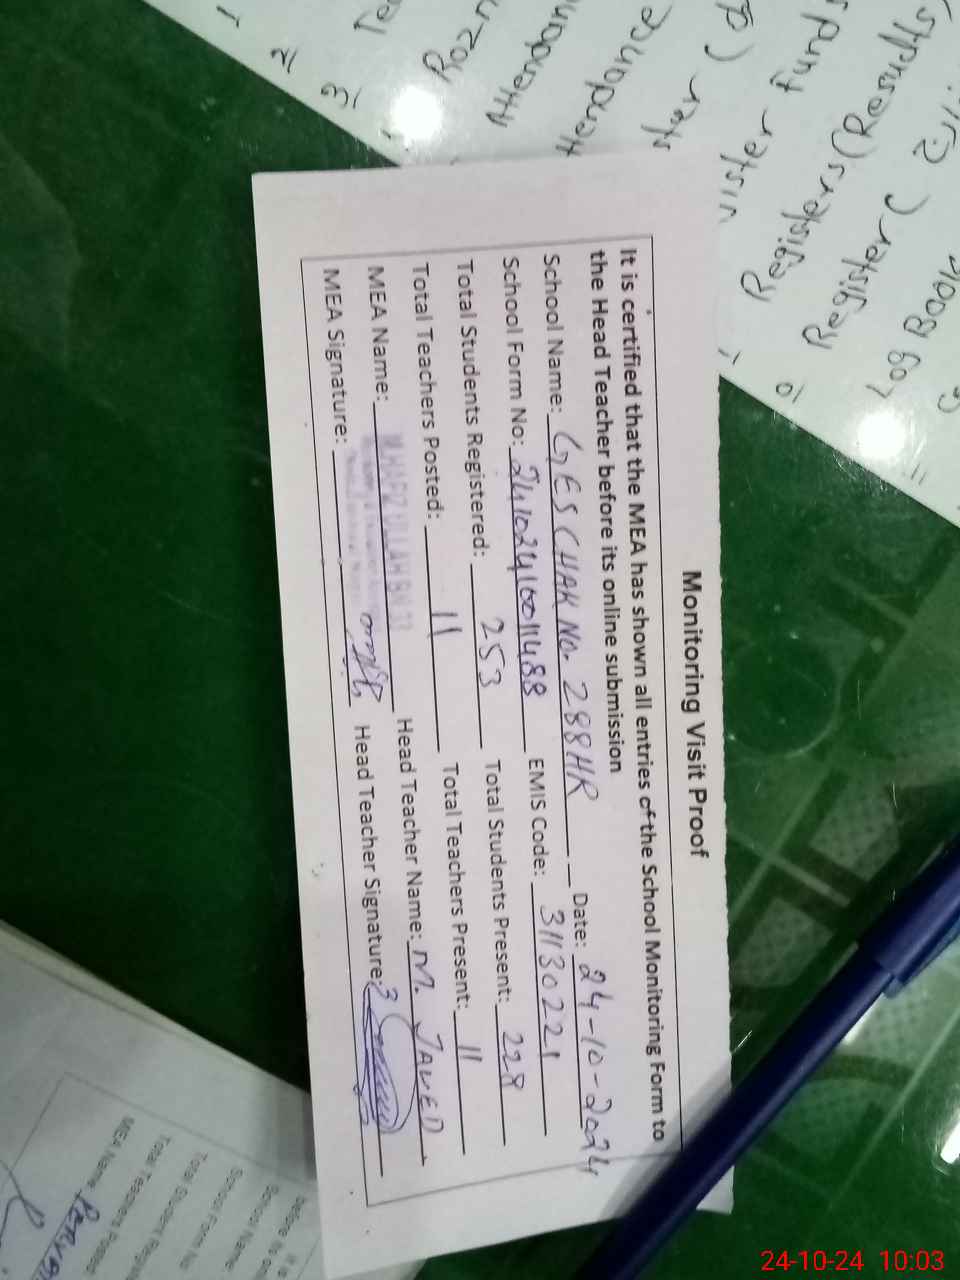 Monitoring Visit Proof
It is certified that the MEA has shown all entries of the School Monitoring Form to
the Head Teacher before its online submission
School Name: GES CHAK NO. 288HR Date: 24-10-2024
School Form No: EMIS Code: 31130221
Total Students Registered: 253 Total Students Present: 228
Total Teachers Posted: 11 Total Teachers Present: 11
MEA Name: M.HAFIZ ULLAH BN 33 Head Teacher Name: M. JAVED
MEA Signature: Head Teacher Signature:
1
2
3
Attendance
Register Funds
Registers (Results)
Register (
Log Book
School Name
School Form No
Total Student
Total Teachers Posted
MEA Name
24-10-24 10:03